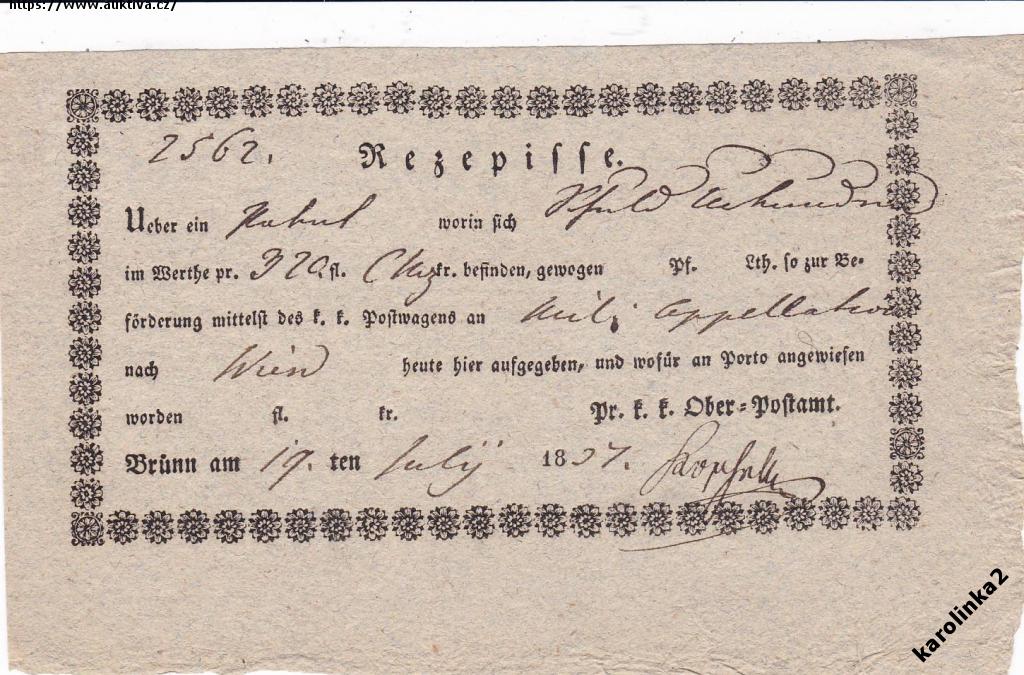 https://www.auktiva.cz/
2562. Rezepisse.
Ueber ein worin sich Schuld
im Werthe pr. 320 fl. CMz kr. befinden, gewogen Pf. Lth. so zur Be-
förderung mittelst des k. k. Postwagens an Milit Appellation
nach Wien heute hier aufgegeben, und wofür an Porto angewiesen
worden fl. kr. Pr. k. k. Ober-Postamt.
Brünn am 19. ten July 1837.
karolinka2